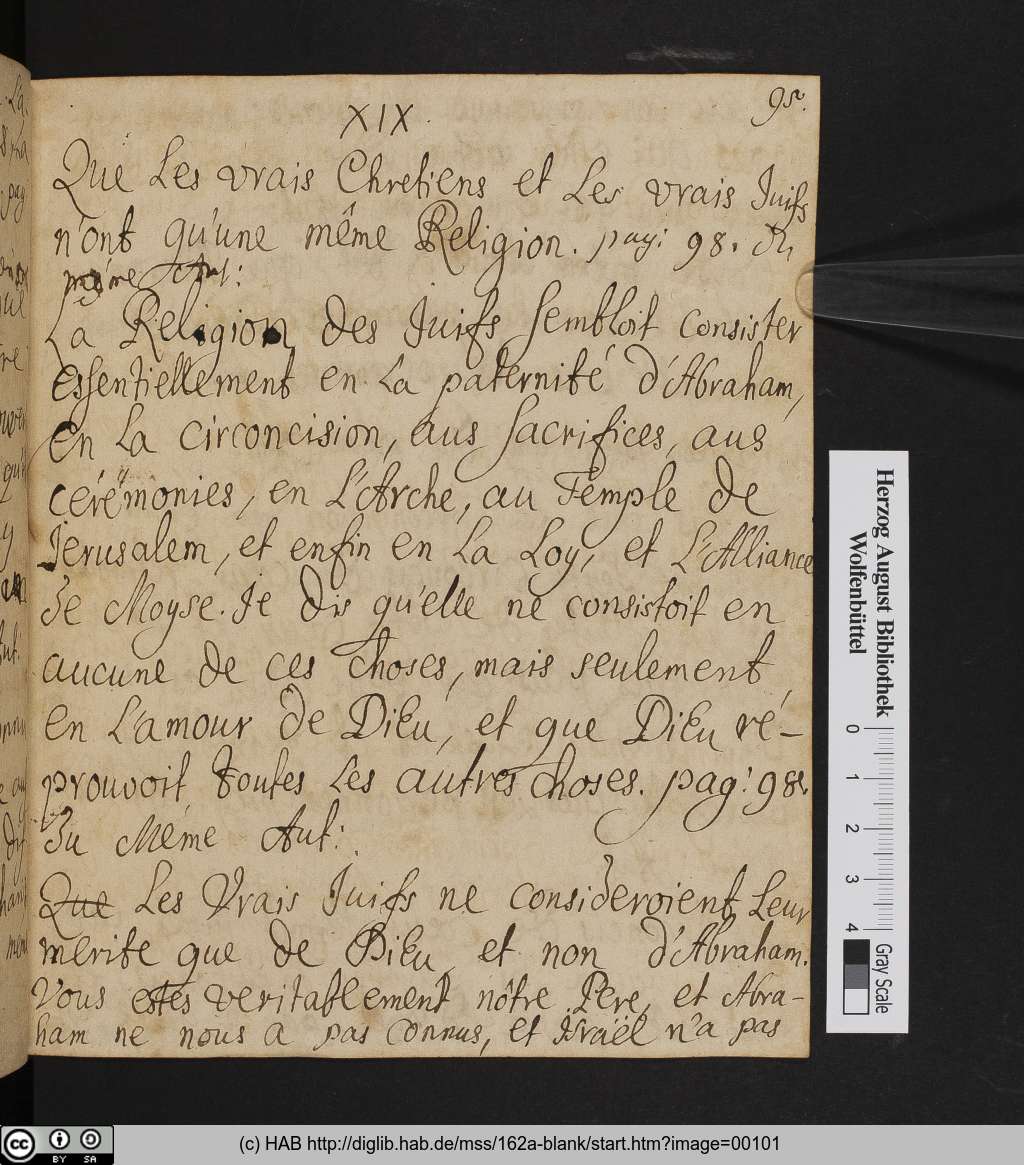 95.
XIX.
Que Les vrais Chretiens et Les vrais Juifs
n'ont qu'une même Religion. pag: 98. du
même Aut:
La Religion des Juifs sembloit consister
essentiellement en La paternité d'Abraham,
en La circoncision, aus sacrifices, aus
cérémonies, en L'Arche, au Temple de
Jerusalem, et enfin en La Loy, et L'Alliance
de Moyse. Je dis qu'elle ne consistoit en
aucune de ces choses, mais seulement
en L'amour de Dieu, et que Dieu ré-
prouvoit toutes Les autres choses. pag: 98.
du Même Aut:
Que Les Vrais Juifs ne consideroient Leur
merite que de Dieu, et non d'Abraham.
Vous estes veritablement nôtre Pere, et Abra-
ham ne nous a pas connus, et Israël n'a pas
Herzog August Bibliothek
Wolfenbüttel
0 1 2 3 4
Gray Scale
cc BY SA
(c) HAB http://diglib.hab.de/mss/162a-blank/start.htm?image=00101